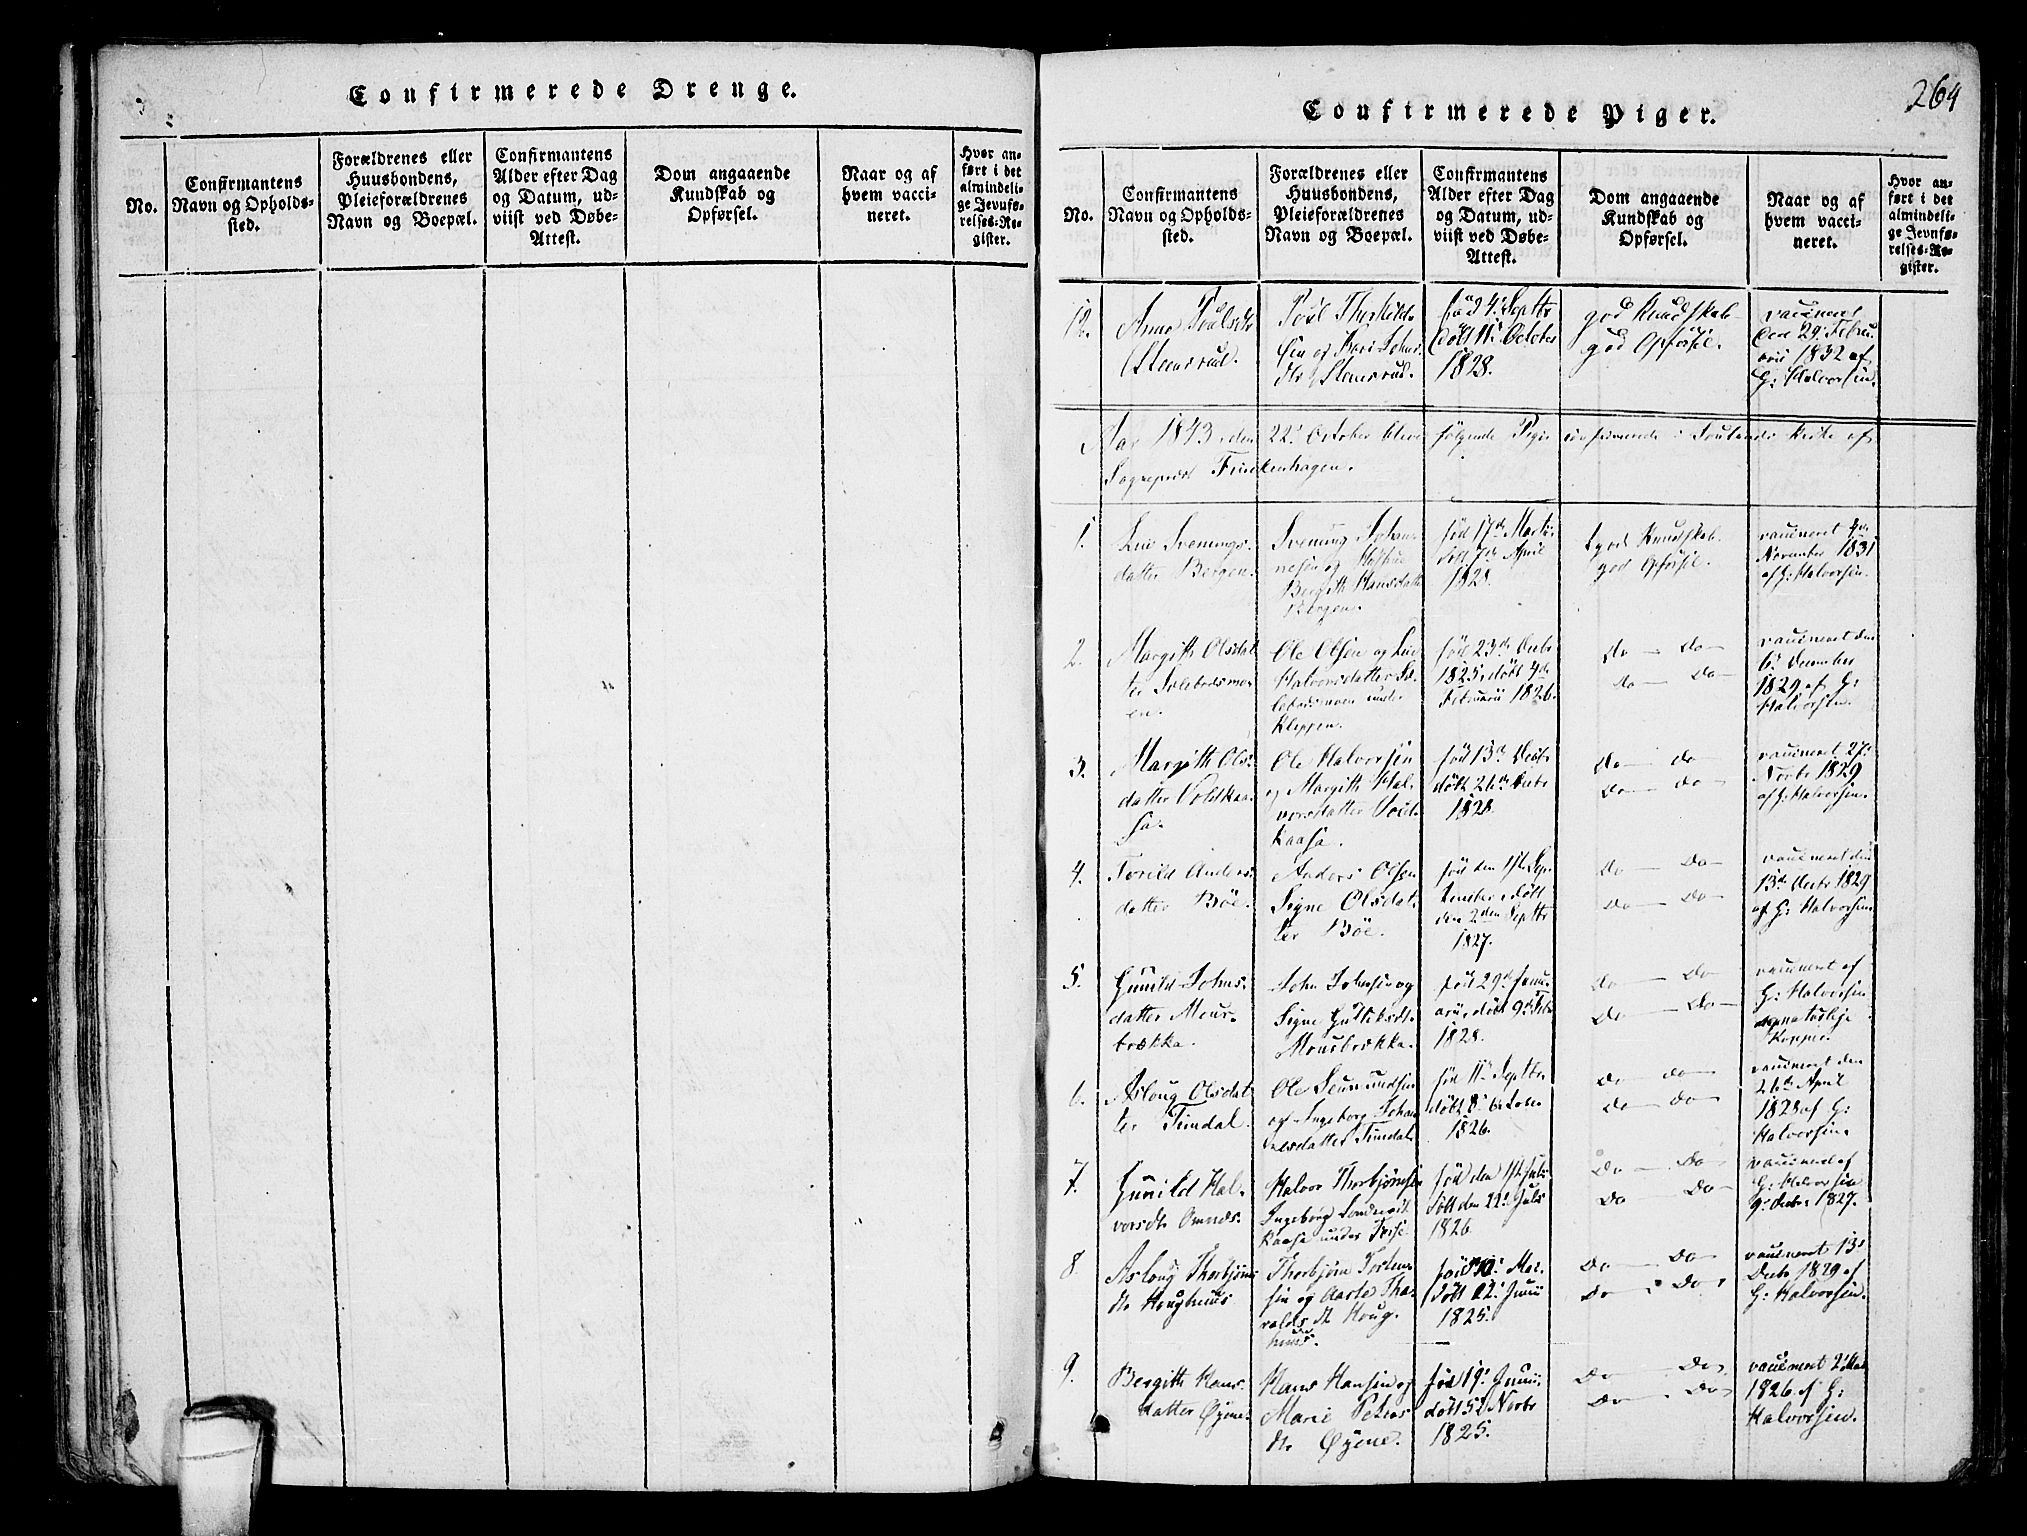 Confirmerede Drenge.
No.
Confirmantens
Navn og Opholds-
sted.
Forældrenes eller
Huusbondens,
Pleieforældrenes
Navn og Boepæl.
Confirmantens
Alder efter Dag
og Datum, ud-
viist ved Døbe-
Attest.
Dom angaaende
Kundskab og
Opførsel.
Naar og af
hvem vacci-
neret.
Hvor an-
ført i det
almindeli-
ge Jevnfø-
relses-Re-
gister.
264
Confirmerede Piger.
No.
Confirmantens
Navn og Opholds-
sted.
Forældrenes eller
Huusbondens,
Pleieforældrenes
Navn og Boepæl.
Confirmantens
Alder efter Dag
og Datum, ud-
viist ved Døbe-
Attest.
Dom angaaende
Kundskab og
Opførsel.
Naar og af
hvem vacci-
neret.
Hvor an-
ført i det
almindeli-
ge Jevnfø-
relses-Re-
gister.
12.
Anne
Steensrud.
Stensrud.
fød 4. Septbr
døbt 11. October
1828.
god Kundskab
god Opførsel.
vaccineret
den 29. Febru
arii 1832 af
H: Halvorsen.
Aar 1843, den 22. October bleve følgende Piger confirmerede i Kirke af
Sognepræst Finckenhagen.
1.
Svenings-
datter Bergen.
Svening Johan-
nesen og
Bergith Hansdatter
Bergen.
fød 17de Marti
døbt 7de April
1828.
god Kundskab
god Opførsel.
vaccineret
November 1831
af H: Halvorsen.
2.
Margith Olsdat
ter
en.
Ole Olsen og
Halvorsdatter
under
Kleppen.
fød 23de Decbr
1825, døbt 4de
Februarii 1826.
Do — Do —
Do — Do —
vaccineret den
6. December
1829 af H:
Halvorsen.
3.
Margith Ols-
datter Voldkaa-
sa.
Ole Halvorsen
og Margith Hal-
vorsdatter Vold-
kaasa.
fød 13de Decbr
døbt 26de Decbr
1828.
Do — Do
Do — Do —
vaccineret 27.
Novbr 1829
af H: Halvorsen.
4.
Torild Anders-
datter Böe.
Anders Olsen
Signe Olsdat-
ter Böe.
fød den 1st Sep-
tember, døbt
den 2den Septbr
1827.
Do — Do —
Do — Do —
vaccineret den
13de Decbr 1829
af H: Halvorsen
5.
Gunild Johns-
datter
brækka.
John Johnsen og
Signe
brækka.
fød 29de Janu-
arii, døbt 9de Feb
1828.
Do — Do
Do — Do —
vaccineret af
H: Halvorsen
naturlige
Kopper.
6.
Asloug Olsdat
ter Timdal.
Ole
og Ingeborg Johan-
nesdatter Timdal.
fød 11. Septbr
døbt 8. October
1826.
Do — Do —
Do — Do —
vaccineret den
26de April
1828 af H:
Halvorsen.
7.
Gunild Hal-
vorsdtr
Halvor Thorbjørnsen
Ingeborg
kaasa under
fød den 1st Juli
døbt den 22. Juli
1826
Do — Do —
Do — Do —
vaccineret af
H: Halvorsen
9. Decbr 1827.
8.
Aslaug Thorbjørns
dtr
Thorbjørn
sen og Aaste Tha-
ralds dtr Houg-
fød 10. Mai
døbt 12. Junii
1825.
Do — Do —
Do — Do
vaccineret 13.
Decbr 1829 af
H: Halvorsen.
9.
Bergith Hans-
datter Øyene.
Hans Hansen og
Marie Peters
dtr Øyene.
fød 19.
døbt Novbr
1825.
Do — Do
Do — Do
vaccineret 2. Mai
1826 af H:
Halvorsen.